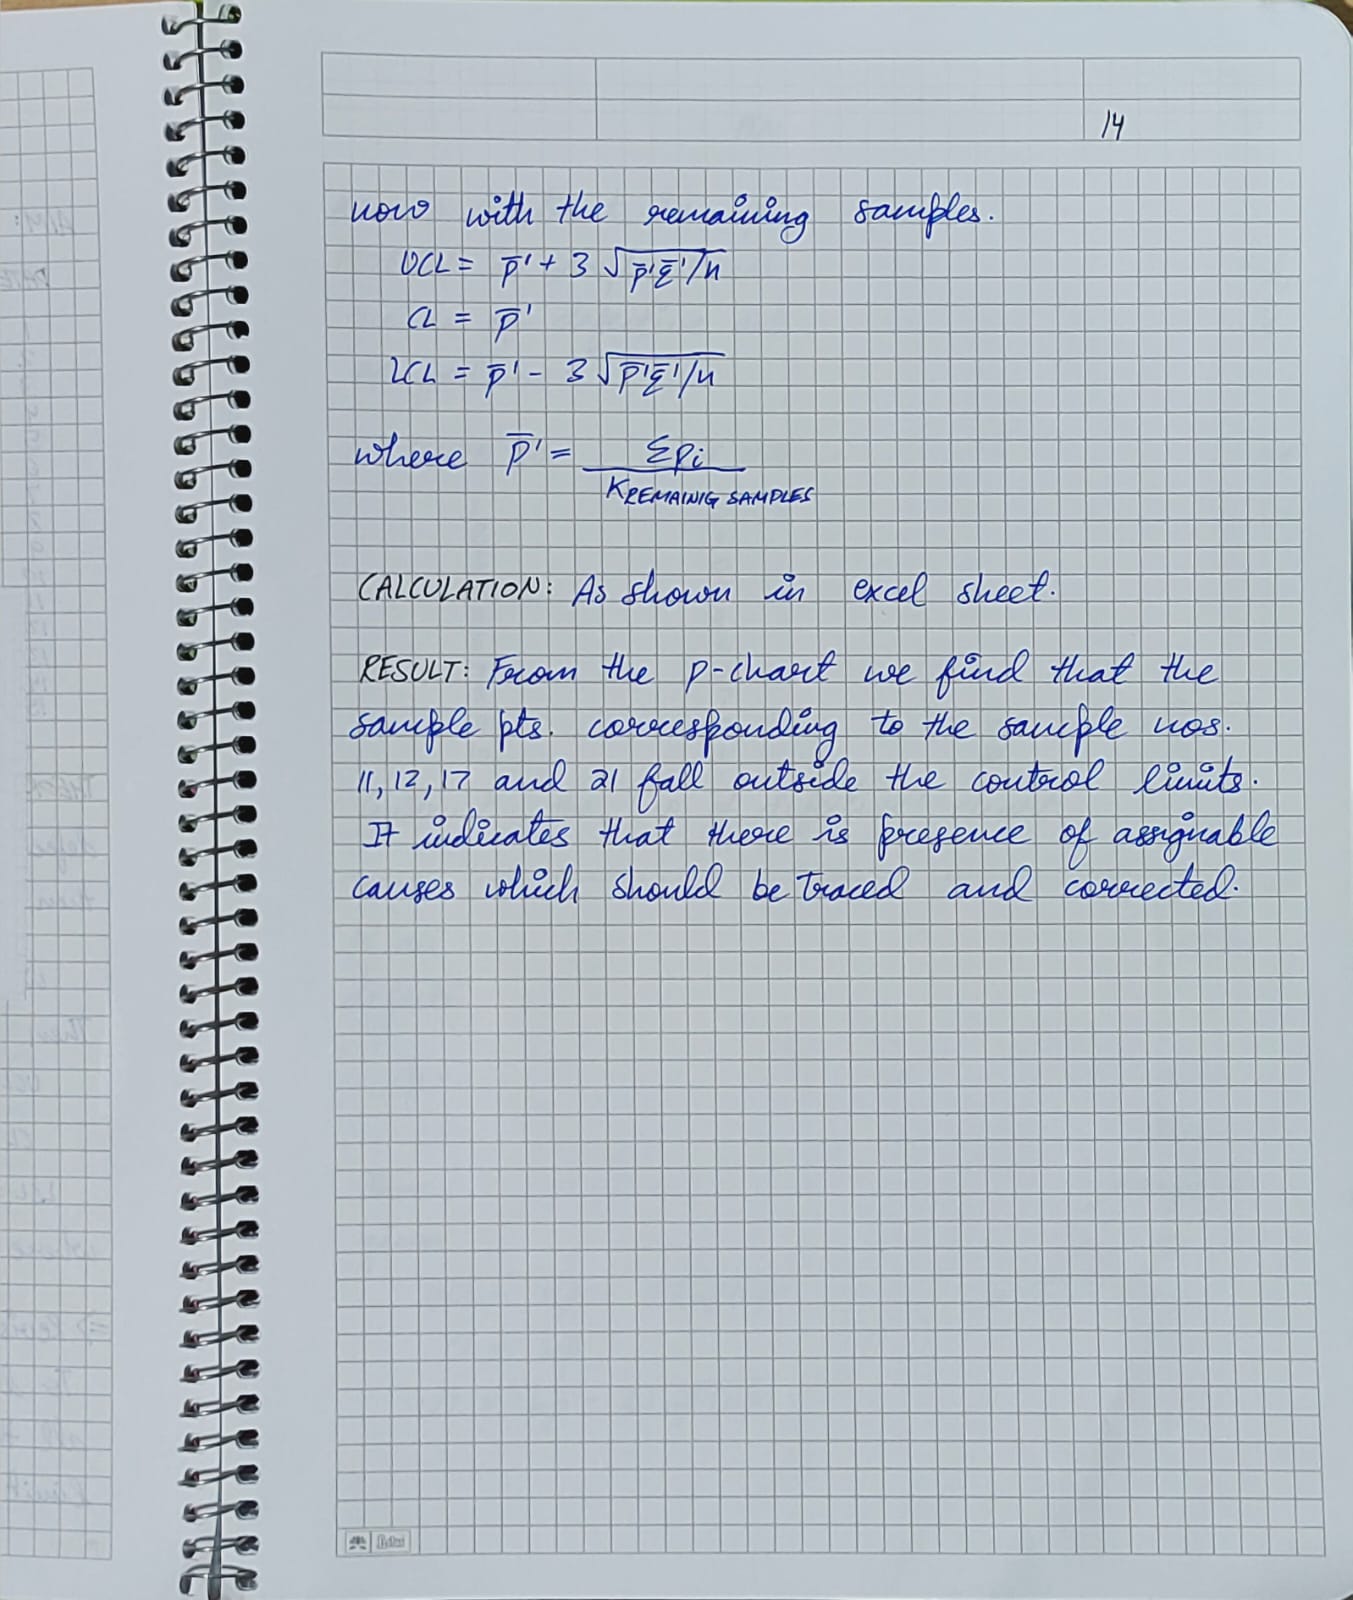 14
now with the remaining samples.
UCL = p̄' + 3 √p̄'q̄'/n
CL = p̄'
LCL = p̄' - 3 √p̄'q̄'/n
where p̄' = Σpi / K REMAINIG SAMPLES
CALCULATION: As shown in excel sheet.
RESULT: From the p-chart we find that the
sample pts. corresponding to the sample nos.
11, 12, 17 and 21 fall outside the control limits.
It indicates that there is presence of assignable
causes which should be traced and corrected.